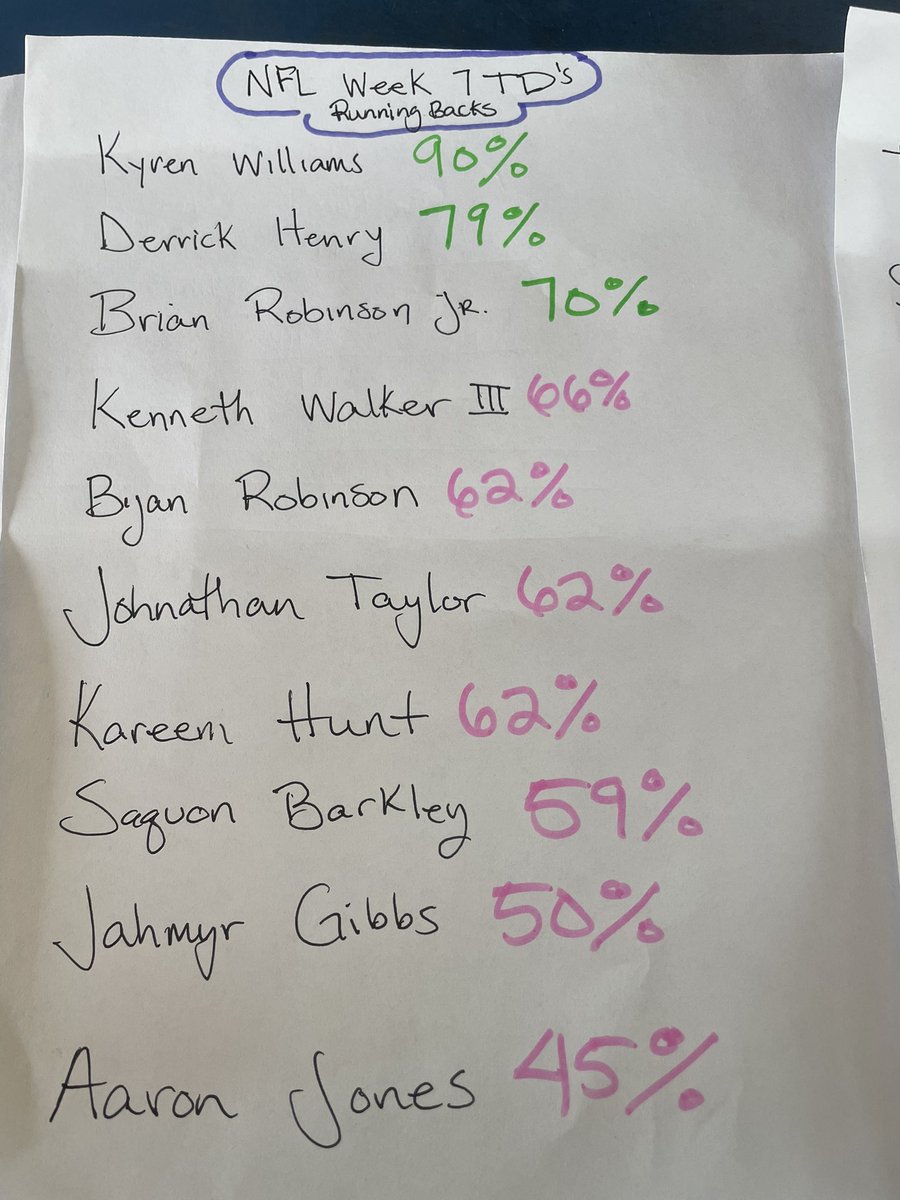 NFL Week 7 TD's
Running Backs
Kyren Williams 90%
Derrick Henry 79%
Brian Robinson Jr. 70%
Kenneth Walker III 66%
Byan Robinson 62%
Johnathan Taylor 62%
Kareem Hunt 62%
Saquon Barkley 59%
Jahmyr Gibbs 50%
Aaron Jones 45%